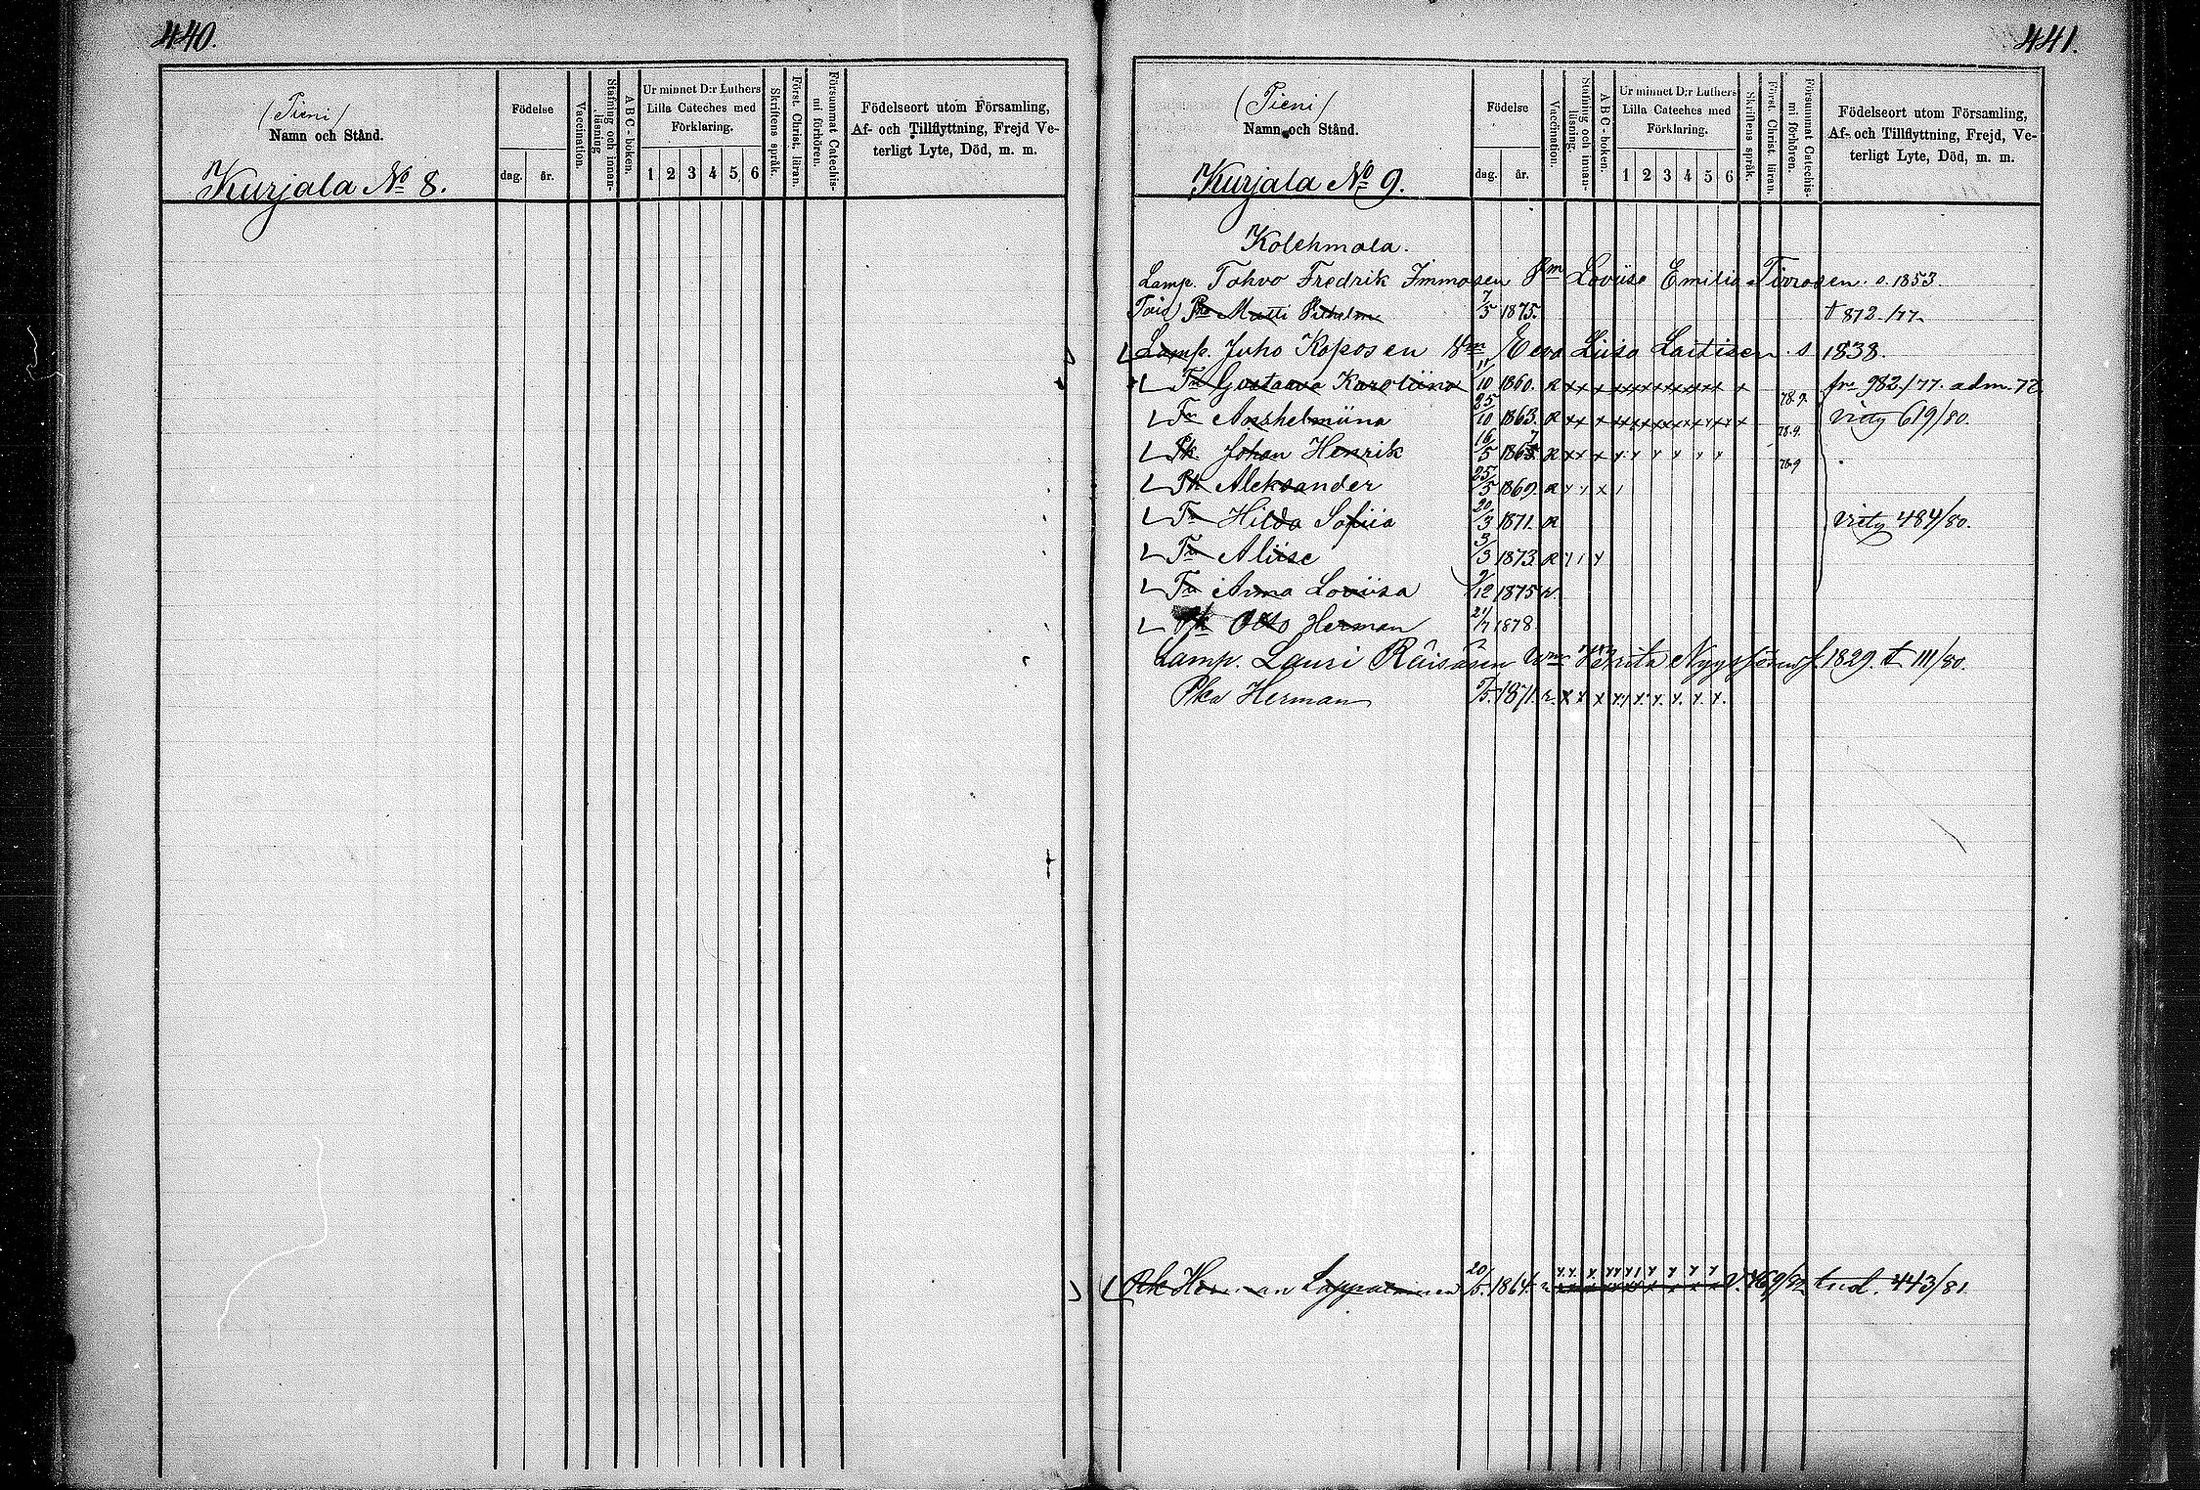 440.
(Pieni)
Namn och Stånd.
Kurjala No 8.
Födelse
dag. år.
Vaccination.
Stafning och innanläsning
ABC-boken.
Ur minnet D:r Luthers
Lilla Cateches med
Förklaring.
1 2 3 4 5 6
Skriftens språk.
Först. Christ. läran.
Försummat Catechismi förhören.
Födelseort utom Församling,
Af- och Tillflyttning, Frejd Ve-
terligt Lyte, Död, m. m.
441.
(Pieni)
Namn och Stånd.
Kurjala No 9.
Födelse
dag. år.
Vaccination.
Stafning och innanläsning.
ABC-boken.
Ur minnet D:r Luthers
Lilla Cateches med
Förklaring.
1 2 3 4 5 6
Skriftens språk.
Först. Christ. läran.
Försummat Catechismi förhören.
Födelseort utom Församling,
Af- och Tillflyttning, Frejd, Ve-
terligt Lyte, Död, m. m.
Kolehmala.
Lamp. Tahvo Fredrik Immosen Loviisa Emilia s. 1853.
Matti Vilhelm 7/5 1875. † 872./77.
Lamp. Juho Koposen Eeva Liisa Laitisen. s 1838.
Tr Gustaava Karoliina 11/10 1860. R xx x xx xx xx xx xx xx x fr. 982./77. adm. 77.
Tr Anshelmiina 25/10 1863. R xx x 78.9. 619/80.
Pk Johan Henrik 16/5 1867. R xx x 78.9.
Pk Aleksander 25/5 1869. R 78.9
Tr Hilda Sofiia 20/3 1871. R 484/80.
Tr Aliise 3/3 1873. R
Tr Anna Loviisa 9/12 1875 r.
Pk Otto Herman 21/7 1878.
Lamp. Lauri Räisäsen 1829. † 111/80.
Pka Herman 1871. r. x x x
Pk Herman Lappalainen 20/5. 1864. 469/82 443/81